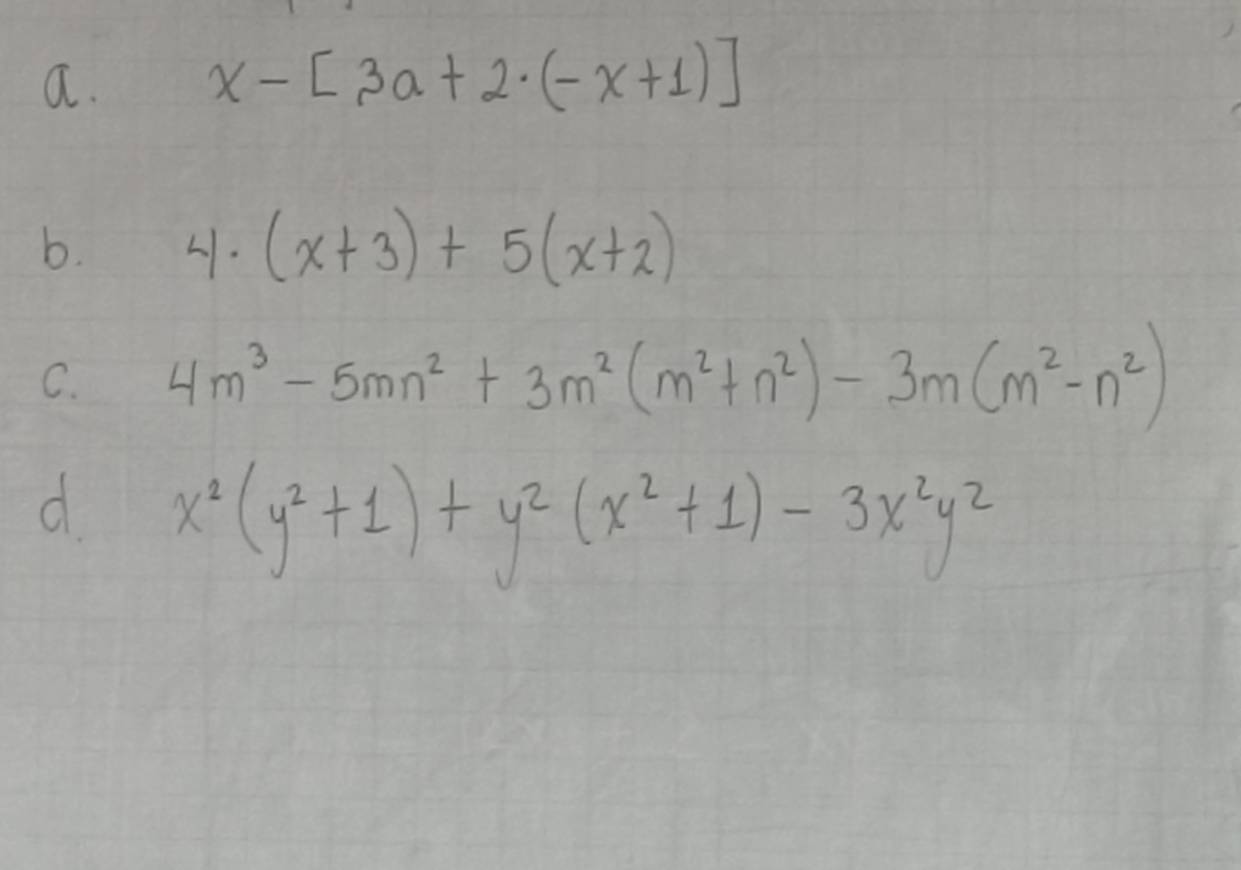 a. x - [3a + 2·(-x+1)]
b. 4·(x+3) + 5(x+2)
c. 4m³ - 5mn² + 3m²(m²+n²) - 3m(m²-n²)
d. x²(y²+1) + y²(x²+1) - 3x²y²